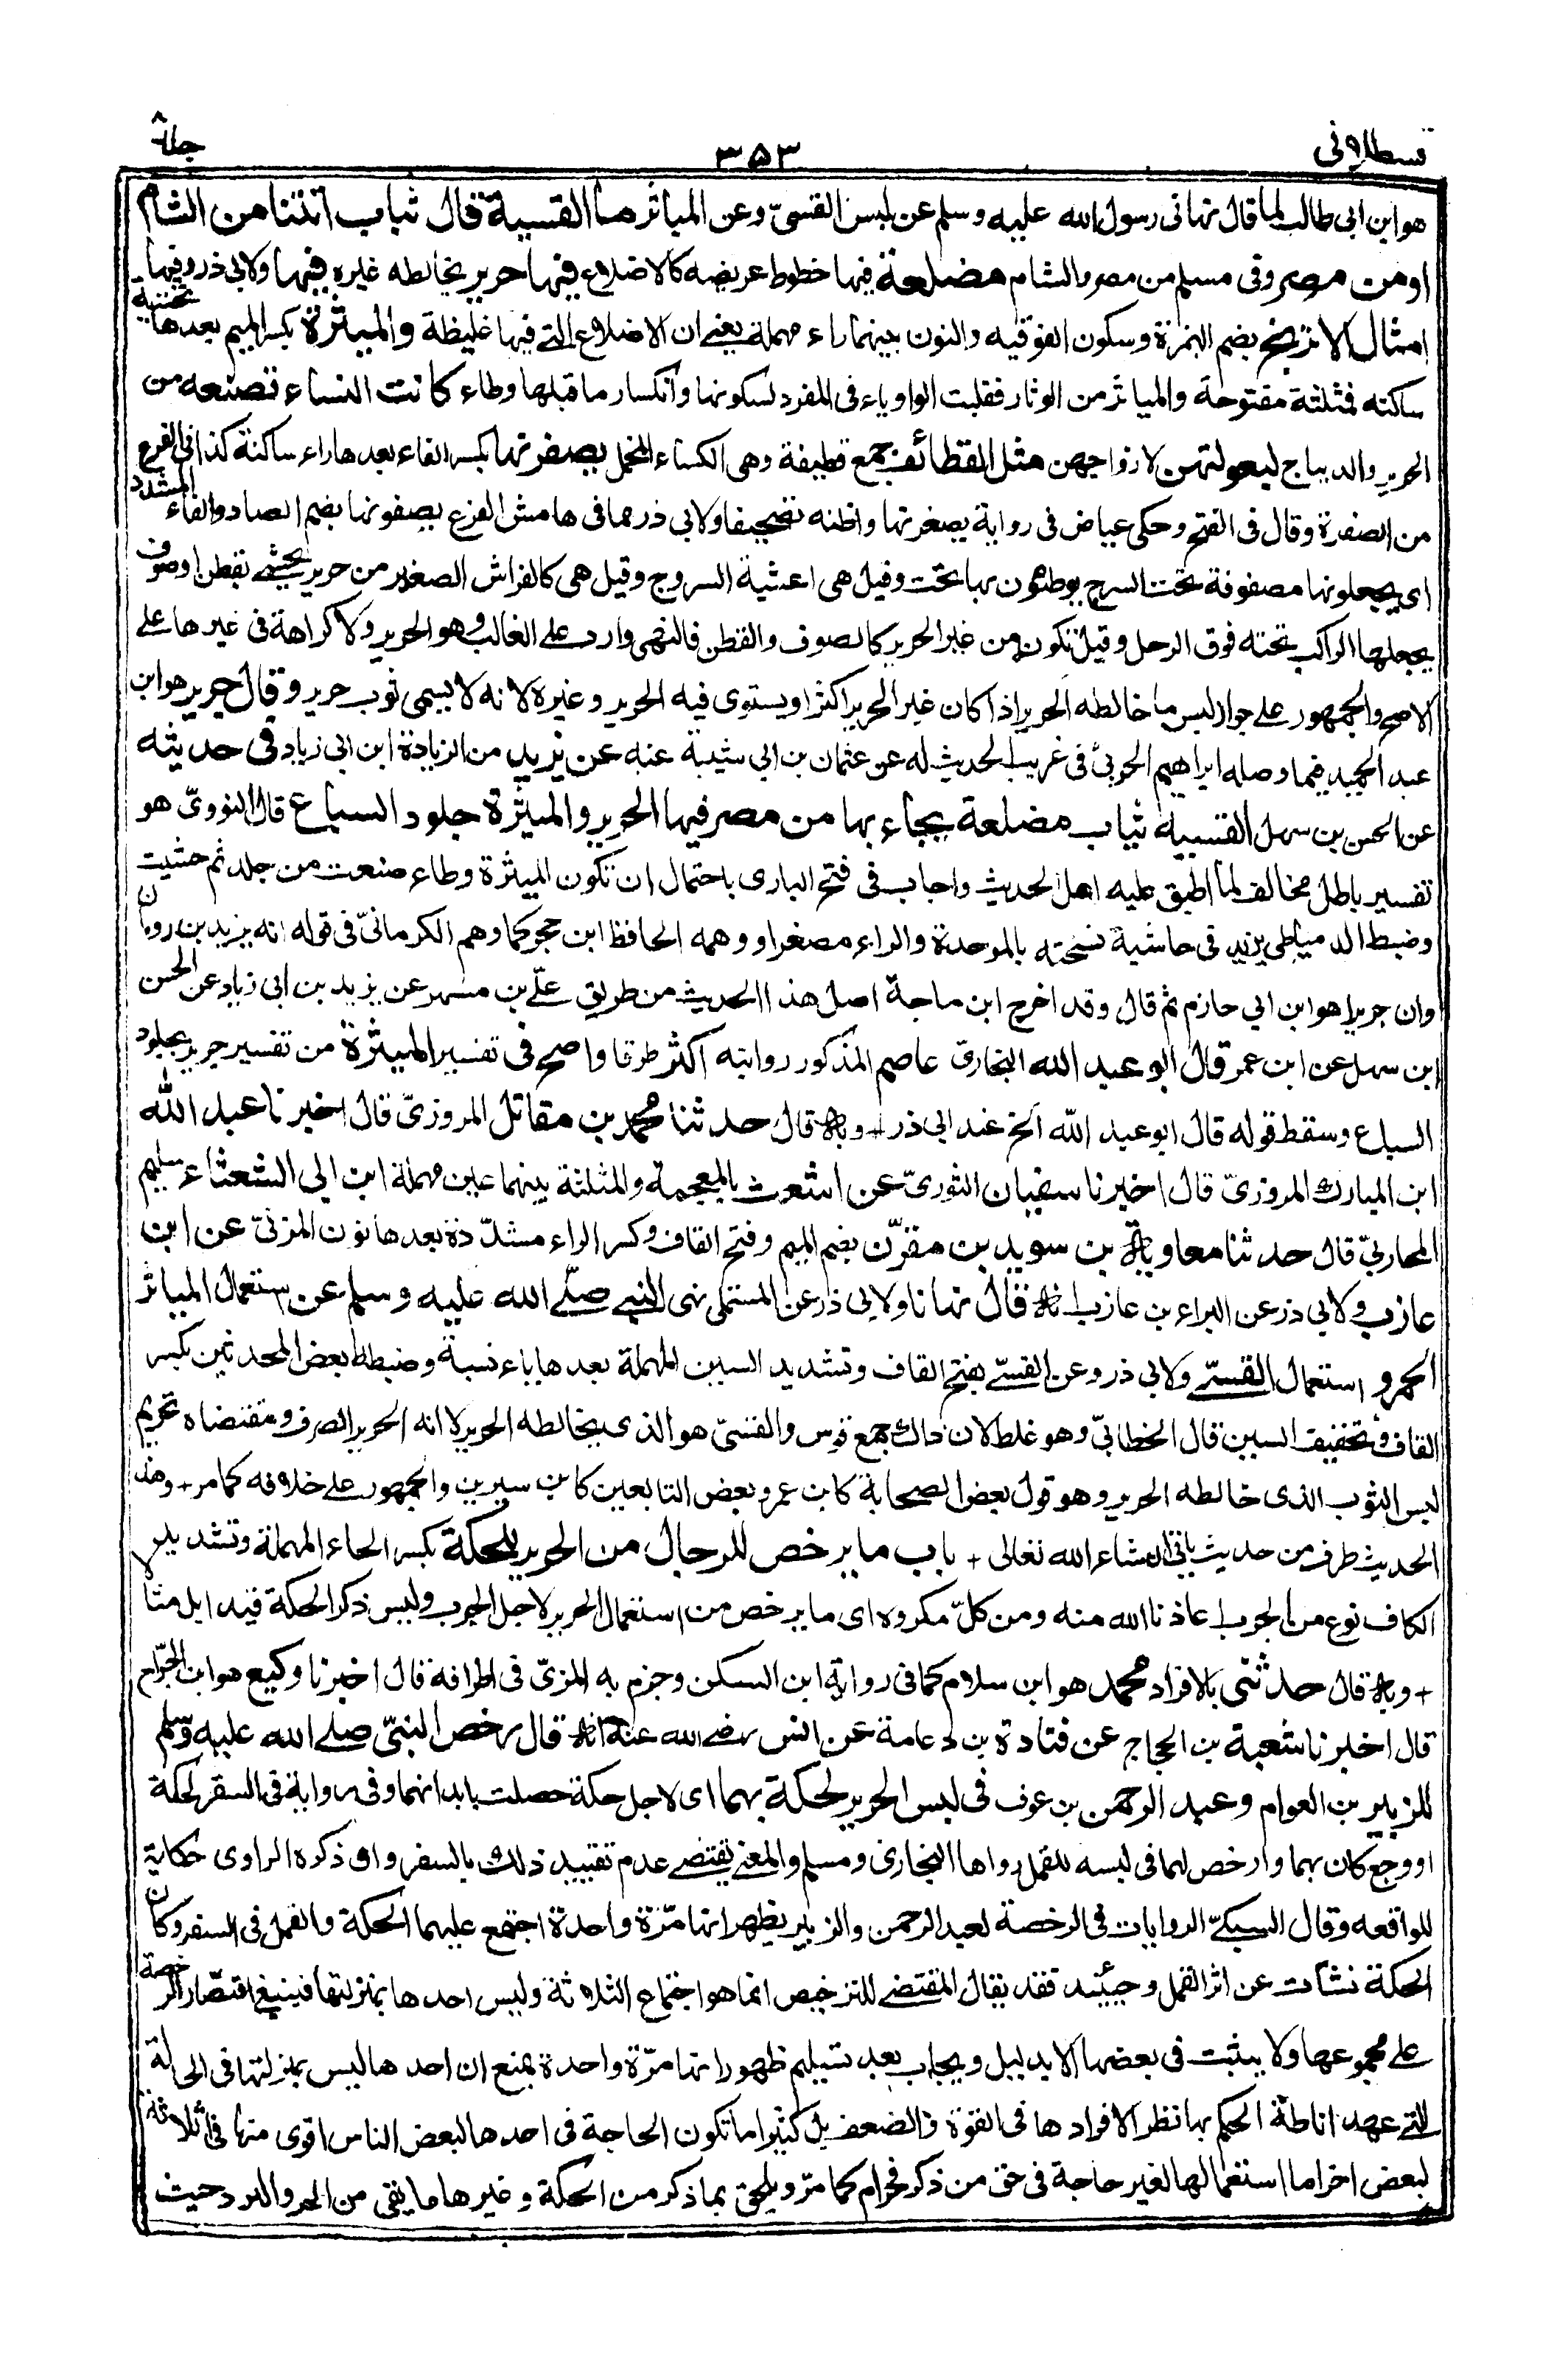 قسطلانی
۳۵۳
جلد ۸
هو ابن ابى طالب لما قال نهانى رسول الله عليه وسلم عن لبس القسىّ وعن المياثر ما القسية قال ثياب اتتنا من الشام
او من مصر وفى مسلم من مصر والشام مضلعة فيها خطوط عريضه كالاضلاع فيها حرير يخالطه غيره فيها ولابى ذر وفيها
امثال الاترنج بضم الهمزة وسكون الفوقيه والنون بينهما راء مهملة يعنى ان الاضلاع التى فيها غليظة والميثرة بكسر الميم بعدها تحتية
ساكنه فمثلثة مفتوحة والمياثر من الوثار فقلبت الواو ياء فى المفرد لسكونها وانكسار ما قبلها وطاء كانت النساء تصنعه من
الحرير والديباج لبعولتهن لازواجهن مثل القطائف جمع قطيفة وهى الكساء المخمل يصفرنها بكسر الفاء بعدها راء ساكنة كذا فى الفرع
من الصفرة وقال فى الفتح وحكى عياض فى رواية يصغرنها واظنه تصحيفا ولابى ذر مما فى هامش الفرع يصفونها بضم الصاد والفاء المشدد
اى يجعلونها مصفوفة تحت السرج يوطئون بها تحت وقيل هى اغشية السروج وقيل هى كالفراش الصغير من حرير يحشى بقطن او صوف
يجعلها الراكب تحته فوق الرحل وقيل تكون من غير الحرير كالصوف والقطن فالنهى وارد على الغالب وهو الحرير ولا كراهة فى غيرها على
الاصح والجمهور على جواز لبس ما خالطه الحرير اذا كان غير الحرير اكثر او يستوى فيه الحرير وغيره لانه لا يسمى ثوب حرير وقال جرير هو ابن
عبد الحميد فيما وصله ابراهيم الحربىّ فى غريب الحديث له عن عثمان بن ابى شيبة عنه عن يزيد من الزيادة ابن ابى زياد فى حديثه
عن الحسن بن سهل القسية ثياب مضلعة يجاء بها من مصر فيها الحرير والميثرة جلود السباع قال النووىّ هو
تفسير باطل مخالف لما اطبق عليه اهل الحديث واجاب فى فتح البارى باحتمال ان تكون الميثرة وطاء صنعت من جلد ثم حشيت
وضبط الدمياطى يزيد فى حاشية نسخته بالموحدة والراء مصغرا ووهمه الحافظ ابن حجر كما وهم الكرمانىّ فى قوله انه يزيد بن رومان
وان جريرا هو ابن ابى حازم ثم قال وقد اخرج ابن ماجة اصل هذا الحديث من طريق علىّ بن مسهر عن يزيد بن ابى زياد عن الحسن
ابن سهل عن ابن عمر قال ابو عبد الله البخارى عاصم المذكور روايته اكثر طرقا واصح فى تفسير الميثرة من تفسير جرير بجلود
السباع وسقط قوله قال ابو عبد الله الخ عند ابى ذر + وبه قال حدثنا محمد بن مقاتل المروزىّ قال اخبرنا عبد الله
ابن المبارك المروزىّ قال اخبرنا سفيان الثورىّ عن اشعث بالمعجمة والمثلثة بينهما عين مهملة ابن ابى الشعثاء سليم
المحاربىّ قال حدثنا معاوية بن سويد بن مقرّن بضم الميم وفتح القاف وكسر الراء مشدّدة بعدها نون المزنىّ عن ابن
عازب ولابى ذر عن البراء بن عازب انه قال نهانا ولابى ذر عن المستملى نهى النبى صلّى الله عليه وسلم عن استعمال المياثر
الحمر و استعمال القسىّ ولابى ذر وعن القسىّ بفتح القاف وتشديد السين المهملة بعدها ياء نسبة وضبطه بعض المحدثين بكسر
القاف وتخفيف السين قال الخطابىّ وهو غلط لان ذاك جمع قوس والقسىّ هو الذى يخالطه الحرير لا انه الحرير الصرف ومقتضاه تحريم
لبس الثوب الذى خالطه الحرير وهو قول بعض الصحابة كابن عمر وبعض التابعين كابن سيرين والجمهور على خلافه كما مر + وهذا
الحديث طرف من حديث ياتى ان شاء الله تعالى + باب ما يرخص للرجال من الحرير للحكة بكسر الحاء المهملة وتشديد
الكاف نوع من الجرب اعاذنا الله منه ومن كلّ مكروه اى ما يرخص من استعمال الحرير لاجل الجرب وليس ذكر الحكة قيدا بل مثالا
+ وبه قال حدثنى بالافراد محمد هو ابن سلام كما فى رواية ابن السكن وجزم به المزىّ فى اطرافه قال اخبرنا وكيع هو ابن الجرّاح
قال اخبرنا شعبة بن الحجاج عن قتادة بن دعامة عن انس رضى الله عنه انه قال رخص النبىّ صلى الله عليه وسلم
للزبير بن العوام وعبد الرحمن بن عوف فى لبس الحرير لحكة بهما اى لاجل حكة حصلت بابدانهما وفى رواية فى السفر لحكة
او وجع كان بهما وارخص لهما فى لبسه للقمل رواها البخارى ومسلم والمعنى يقتضى عدم تقييد ذلك بالسفر وان ذكره الراوى حكاية
للواقعه وقال السبكىّ الروايات فى الرخصة لعبد الرحمن والزبير يظهر انها مرّة واحدة اجتمع عليهما الحكة والقمل فى السفر وكان
الحكة نشأت عن اثر القمل وحينئذ فقد يقال المقتضى للترخيص انما هو اجتماع الثلاثة وليس احدها بمنزلتها فينبغى اقتصار الرخصة
على مجموعها ولا يثبت فى بعضها الا بدليل ويجاب بعد تسليم ظهور انها مرّة واحدة بمنع ان احدها ليس بمنزلتها فى الحالة
التى عهد اناطة الحكم بها نظرا لافرادها فى القوة والضعف بل كثيرا ما تكون الحاجة فى احدها لبعض الناس اقوى منها فى الثلاثة
لبعض اخر اما استعمالها لغير حاجة فى حق من ذكر فحرام كما مرّ ويلحق بما ذكر من الحكة وغيرها ما يقى من الحر والبرد حيث